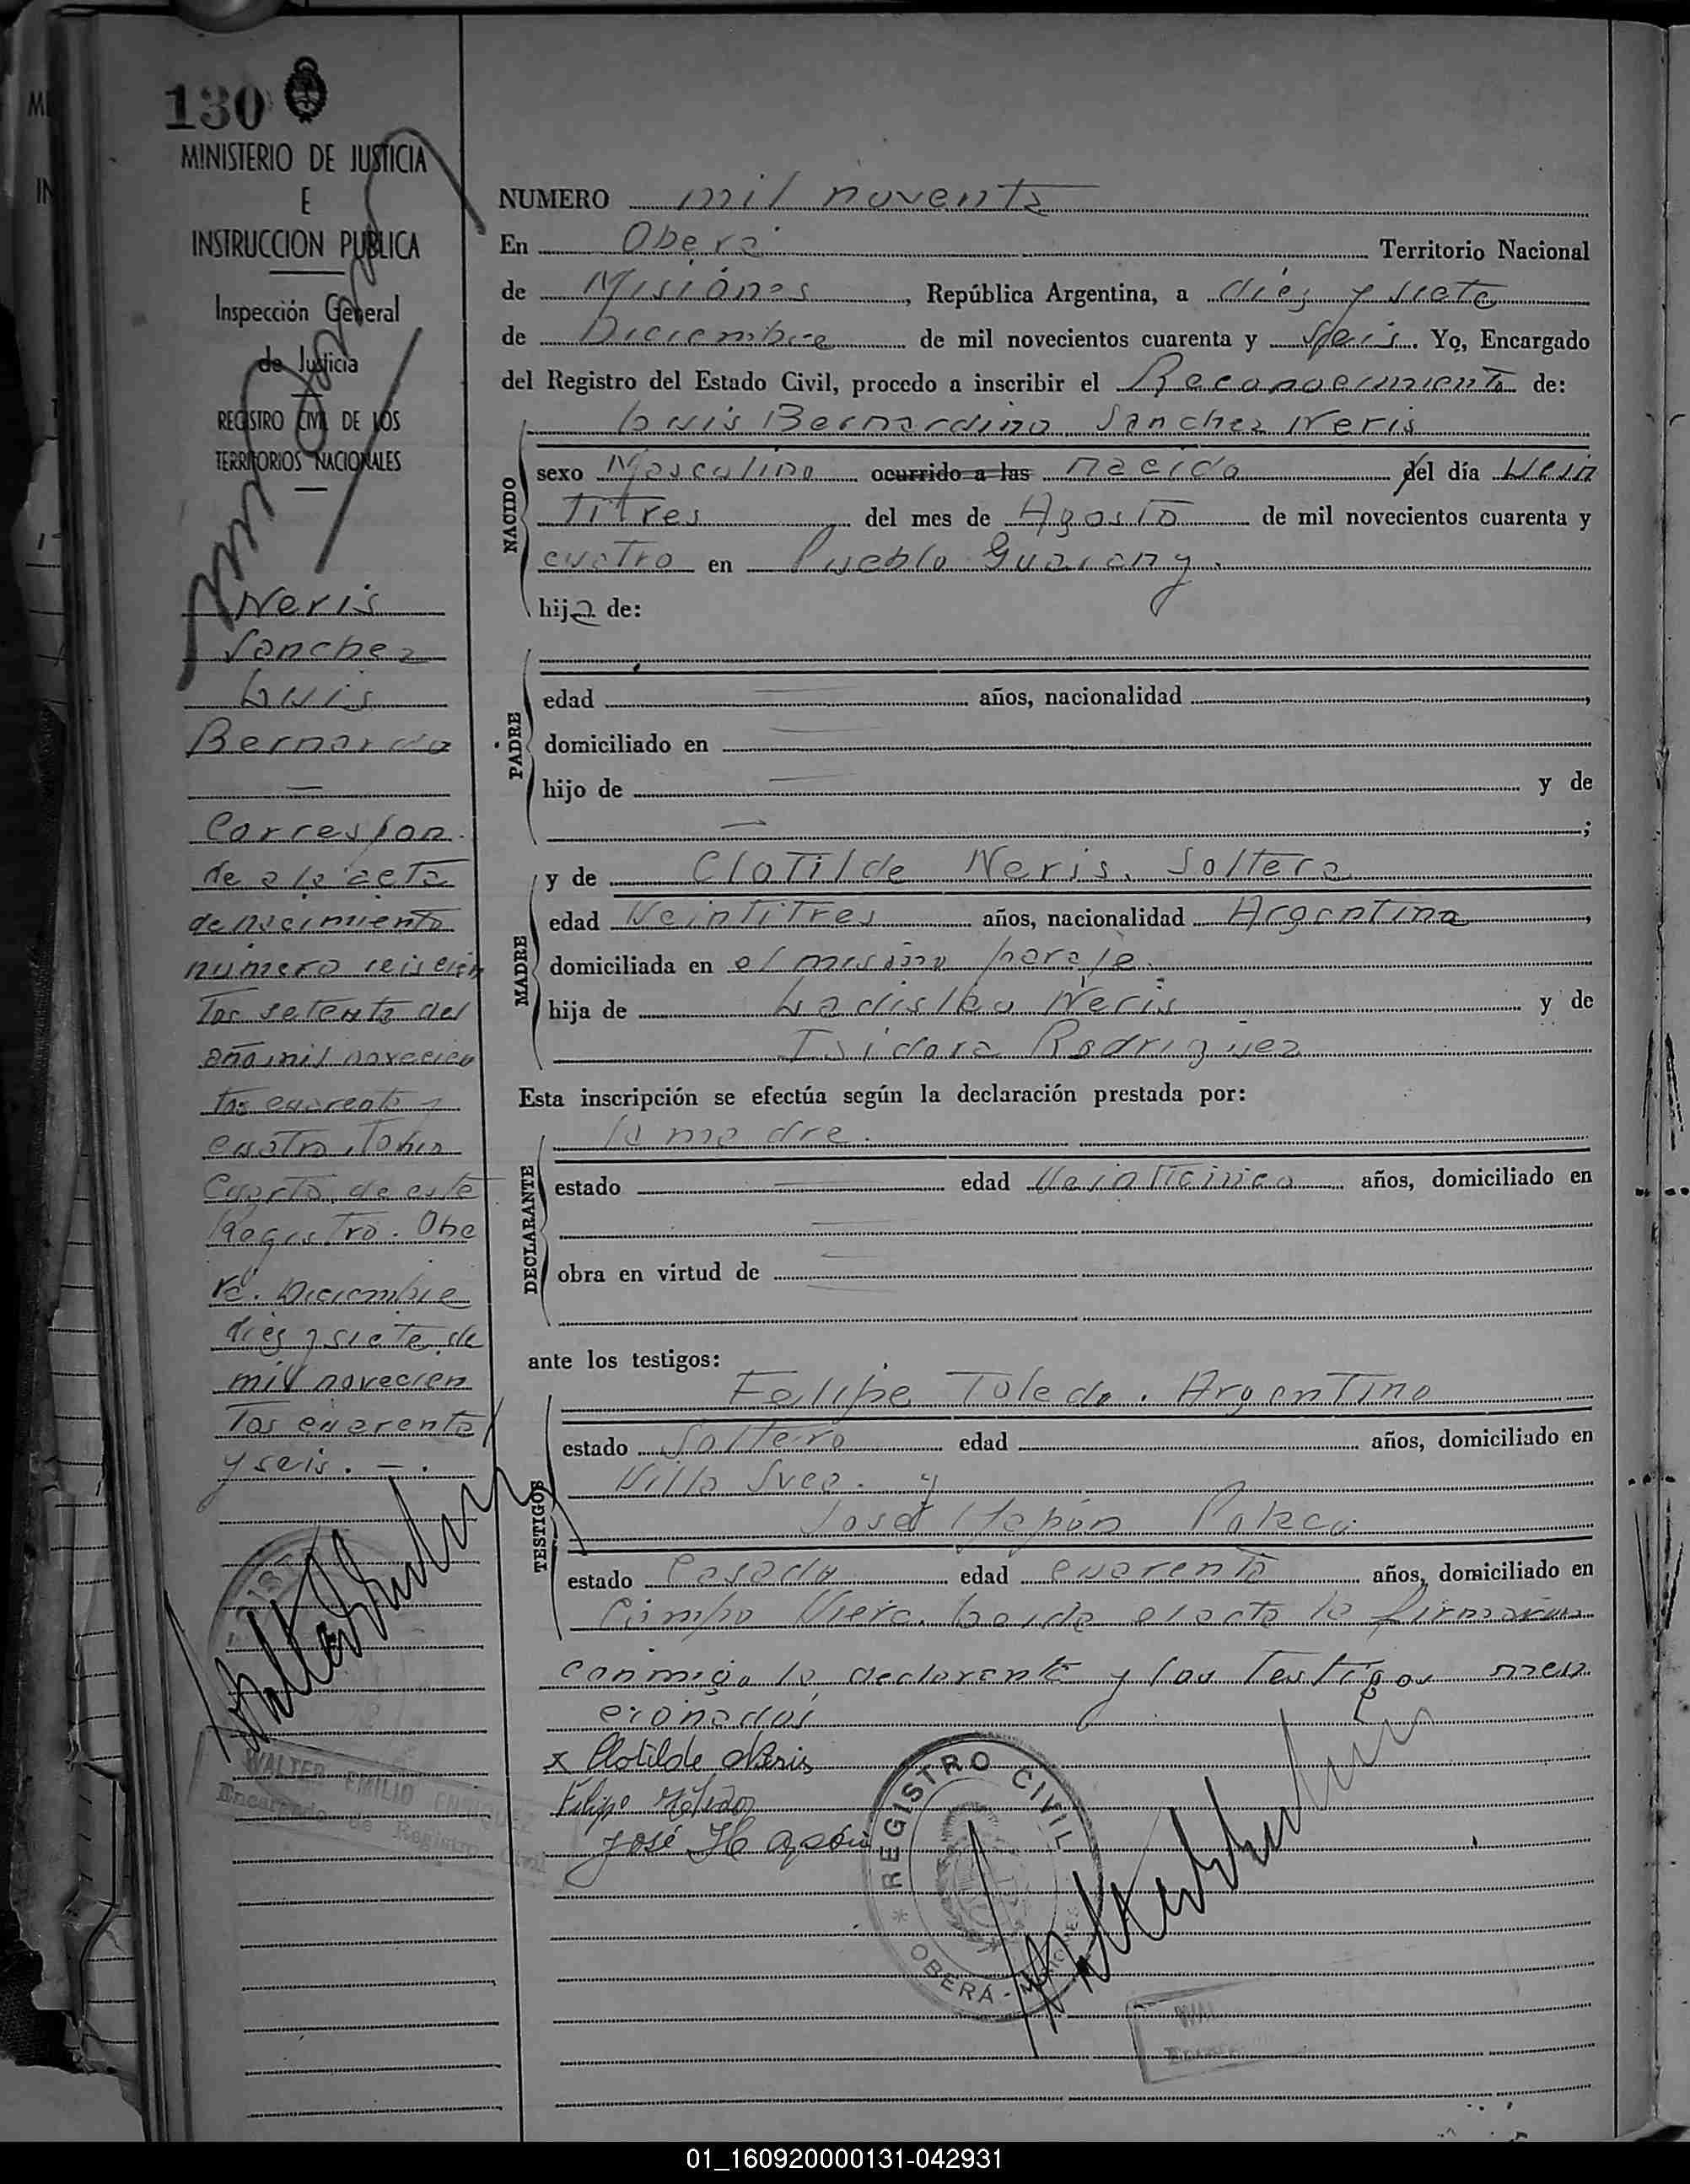 130
MINISTERIO DE JUSTICIA
E
INSTRUCCION PUBLICA
Inspección General
de Justicia
REGISTRO CIVIL DE LOS
TERRITORIOS NACIONALES
Neris
Sanchez
Luis
Bernardo
—
Correspon
de a la acta
de nacimiento
número seiscien
tos setenta del
año mil novecien
tos cuarenta y
cuatro, Tomo
Cuarto de este
Registro. Obe
rá. Diciembre
diez y siete de
mil novecien
tos cuarenta
y seis. — .
WALTER EMILIO ENRIQUEZ
Encargado de Registro Civil
NUMERO mil noventa
En Oberá Territorio Nacional
de Misiones, República Argentina, a diez y siete
de Diciembre de mil novecientos cuarenta y seis. Yo, Encargado
del Registro del Estado Civil, procedo a inscribir el Reconocimiento de:
NACIDO
Luis Bernardino Sanchez Neris
sexo Masculino ocurrido a las nacido del día Vein
titres del mes de Agosto de mil novecientos cuarenta y
cuatro en Pueblo Guarany.
hijo de:
PADRE
edad años, nacionalidad ,
domiciliado en
hijo de y de
— ;
MADRE
y de Clotilde Neris. Soltera
edad Veintitres años, nacionalidad Argentina,
domiciliada en el mismo paraje.
hija de Ladislao Neris y de
Isidora Rodriguez
Esta inscripción se efectúa según la declaración prestada por:
DECLARANTE
la madre.
estado edad Veinticinco años, domiciliado en
obra en virtud de
ante los testigos:
TESTIGOS
Felipe Toledo. Argentino
estado Soltero edad años, domiciliado en
Villa Svea. y
José
estado Casado edad cuarenta años, domiciliado en
Campo Viera. Leida el acta la firmaron
conmigo la declarante y los testigos men
cionados
x Clotilde Neris
Felipe Toledo
José
REGISTRO CIVIL
* OBERÁ - MISIONES
01_160920000131-042931